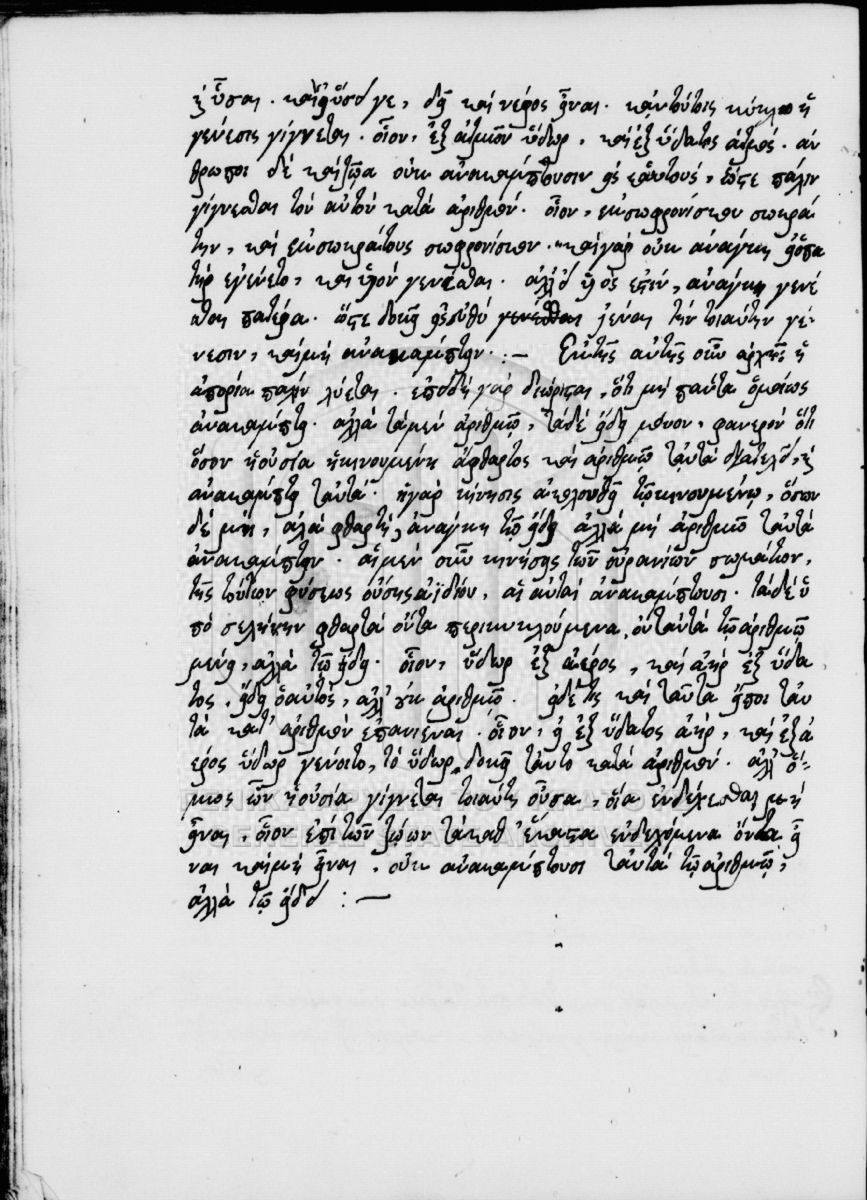 ἢ ὗσαι. καὶ εἰ ὕσει γε, δεῖ καὶ νέφος εἶναι. κἀν τούτοις κύκλῳ ἡ
γένεσις γίγνεται. οἷον, ἐξ ἀτμῶν ὕδωρ, καὶ ἐξ ὕδατος ἀτμός. ἄν
θρωποι δὲ καὶ ζῶα οὐκ ἀνακάμπτουσιν εἰς ἑαυτούς, ὥςτε πάλιν
γίγνεσθαι τὸν αὐτὸν κατὰ ἀριθμόν. οἷον, ἐκ σωφρονίσκου σωκρά
την, καὶ ἐκ σωκράτους σωφρονίσκον. καὶ γὰρ οὐκ ἀνάγκη εἰ ὁ πα
τὴρ ἐγένετο, καὶ υἱὸν γενέσθαι. ἀλλ' εἰ υἱός ἐστιν, ἀνάγκη γενέ
σθαι πατέρα. ὥςτε δοκεῖ εἰς εὐθὺ ἰέναι τὴν τοιαύτην γέ-
νεσιν, καὶ μὴ ἀνακάμπτειν. :— Ἐκ τῆς αὐτῆς οὖν ἀρχῆς ἡ
ἀπορία πάλιν λύεται. ἐπειδὴ γὰρ διώρισται, ὅτι μὴ πάντα ὁμοίως
ἀνακάμπτει. ἀλλὰ τὰ μὲν ἀριθμῷ, τὰ δὲ εἴδει μόνον, φανερὸν ὅτι
ὅσον ἡ οὐσία ἡ κινουμένη ἄφθαρτος καὶ ἀριθμῷ ταὐτὰ διατελεῖ, ἢ
ἀνακάμπτει ταὐτά. ἡ γὰρ κίνησις ἀκολουθεῖ τῷ κινουμένῳ, ὅσων
δὲ μὴ, ἀλλὰ φθαρτή, ἀνάγκη τῷ εἴδει ἀλλὰ μὴ ἀριθμῷ ταὐτὰ
ἀνακάμπτειν. αἱ μὲν οὖν κινήσεις τῶν οὐρανίων σωμάτων,
τῆς τούτων φύσεως οὔσης ἀϊδίου, αἱ αὐταὶ ἀνακάμπτουσι. τὰ δὲ ὑ
πὸ σελήνην φθαρτὰ ὄντα περικυκλούμενα, οὐ ταὐτὰ τῷ ἀριθμῷ
μένει, ἀλλὰ τῷ εἴδει. οἷον, ὕδωρ ἐξ ἀέρος, καὶ ἀὴρ ἐξ ὕδα
τος, εἴδει ὁ αὐτός, ἀλλ' οὐκ ἀριθμῷ. εἰ δέ τις καὶ ταῦτα εἴποι ταὐ
τὰ κατ' ἀριθμὸν ἐπανιέναι. οἷον, εἰ ἐξ ὕδατος ἀὴρ, καὶ ἐξ ἀ
έρος ὕδωρ γένοιτο, τὸ ὕδωρ δοκεῖ ταὐτὸ κατὰ ἀριθμόν. ἀλλ' ὅ-
μως ὧν ἡ οὐσία γίγνεται τοιαύτη οὖσα, οἵα ἐνδέχεσθαι μὴ
εἶναι, οἷον ἐπὶ τῶν ζώων τὰ καθ' ἕκαστα ἐνδεχόμενα ὄντα εἶ
ναι καὶ μὴ εἶναι, οὐκ ἀνακάμπτουσι ταὐτὰ τῷ ἀριθμῷ,
ἀλλὰ τῷ εἴδει :—